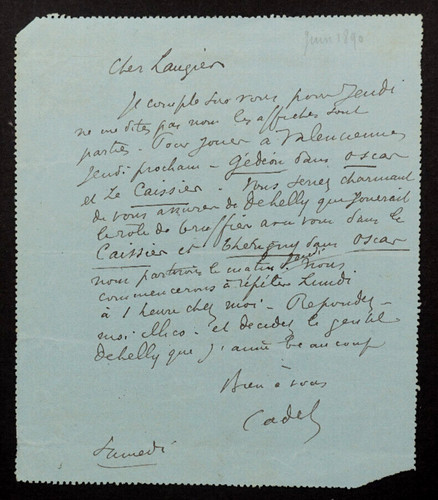 Juin 1890
Cher Laugier
Je compte sur vous pour Jeudi
ne me dites pas non les affiches sont
parties. Pour jouer à Valenciennes
Jeudi prochain - Gédéon dans Oscar
et Le Caissier. Vous seriez charmant
de vous assurer de Dehelly qui jouerait
le rôle de avec vous dans le
Caissier et dans Oscar
nous partirons le matin Jeudi. Nous
commencerons à répéter Lundi
à 1 heure chez moi - Répondez-
moi illico. et décidez le gentil
Dehelly que j'aime beaucoup
Bien à vous
Cadet
Samedi